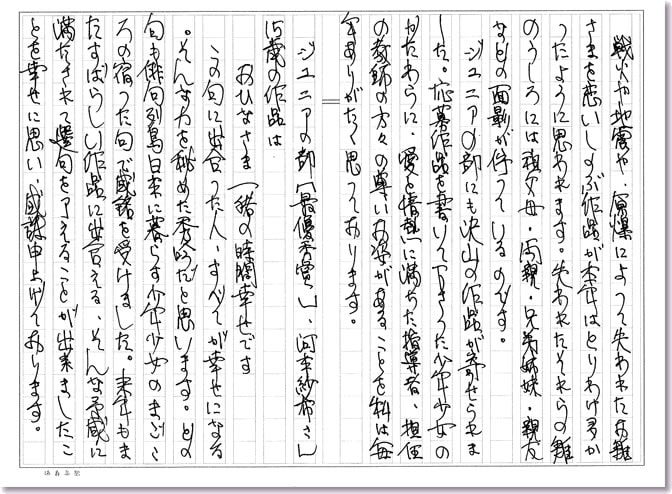 戦火や地震や、原爆によって失われたお雛
さまを恋いしのぶ作品が本年はとりわけ多か
ったように思われます。失われたそれらの雛
のうしろには祖父母・両親・兄弟姉妹・親友
などの面影が佇っているのです。
ジュニアの部にも沢山の作品が寄せられま
した。応募作品を書いて下さった少年少女の
かたわらに、愛と情熱に満ちた指導者、担任
の教師の方々の尊いお姿があることを私は毎
年ありがたく思っております。
ジュニアの部「最優秀賞」、河本紗希さん
15歳の作品は
おひなさま一緒の時間幸せです
この句に出合った人、すべてが幸せになる
。そんな力を秘めた秀吟だと思います。どの
句も俳句列島日本に暮らす少年少女のまごこ
ろの宿った句で感銘を受けました。来年もま
たすばらしい作品に出合える、そんな予感に
満たされて選句を了えることが出来ましたこ
とを幸せに思い、感謝申上げております。